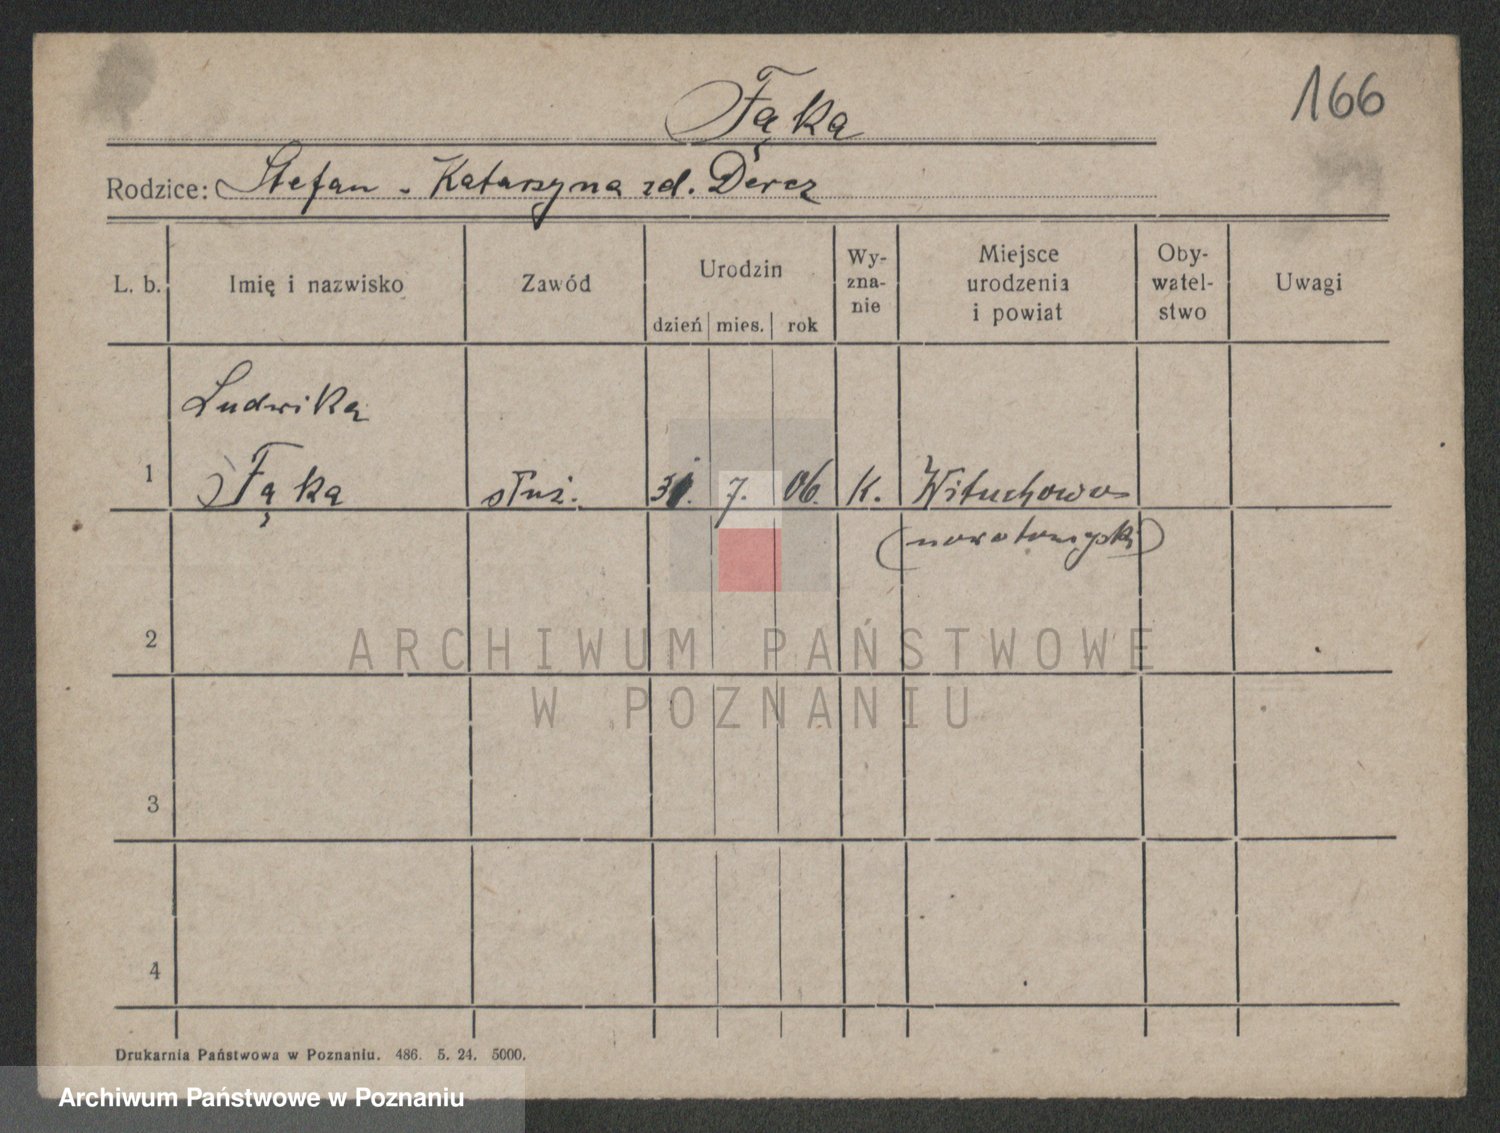 Fąka
166
Rodzice: Stefan - Katarzyna zd. Dercz
L. b.
Imię i nazwisko
Zawód
Urodzin
dzień mies. rok
Wy-
zna-
nie
Miejsce
urodzenia
i powiat
Oby-
watel-
stwo
Uwagi
Ludwika
1 Fąka służ. 31. 7. 06. K. Wituchowo
(nowotomyski)
2
3
4
ARCHIWUM PAŃSTWOWE
W POZNANIU
Drukarnia Państwowa w Poznaniu. 486. 5. 24. 5000.
Archiwum Państwowe w Poznaniu